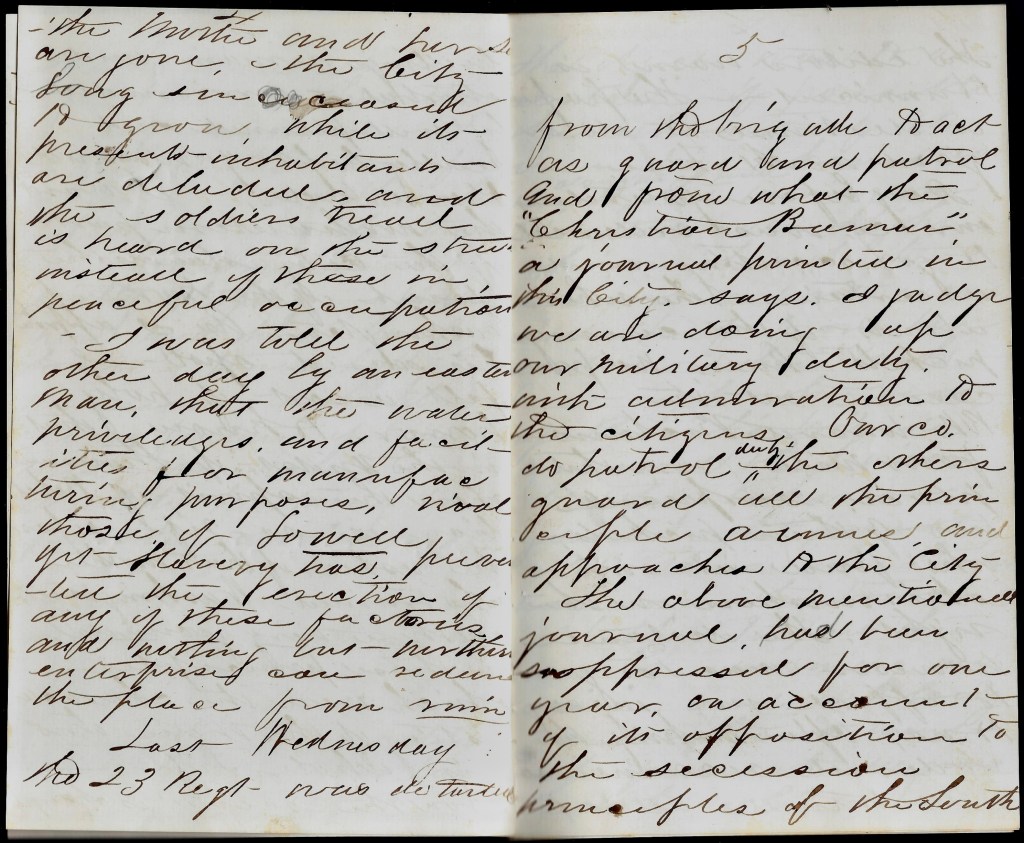 the North and her
are gone, the City
long since ceased
to grow, while its
present inhabitants
are deluded, and
the soldiers tread
is heard on the street
instead of these in
peaceful occupation
- I was told the
other day by an eastern
man, that the water
priviledges, and facil-
ities for manufac
turing purposes, rival
those of Lowell,
yet Slavery has preven
-ted the erection of
any of these factories
and nothing but northern
enterprise can redeem
the place from ruin
Last Wednesday
the 23 Regt was detailed
5
from the brigade to act
as guard and patrol
and from what the
"Christian Banner"
a journal printed in
this City, says. I judge
we are doing up
our military duty.
with admiration to
the citizens. Our co.
do patrol duty the others
guard all the prin
ciple avenues and
approaches to the City
The above mentioned
journal had been
suppressed for one
year, on account
of its opposition to
the secession
principles of the South